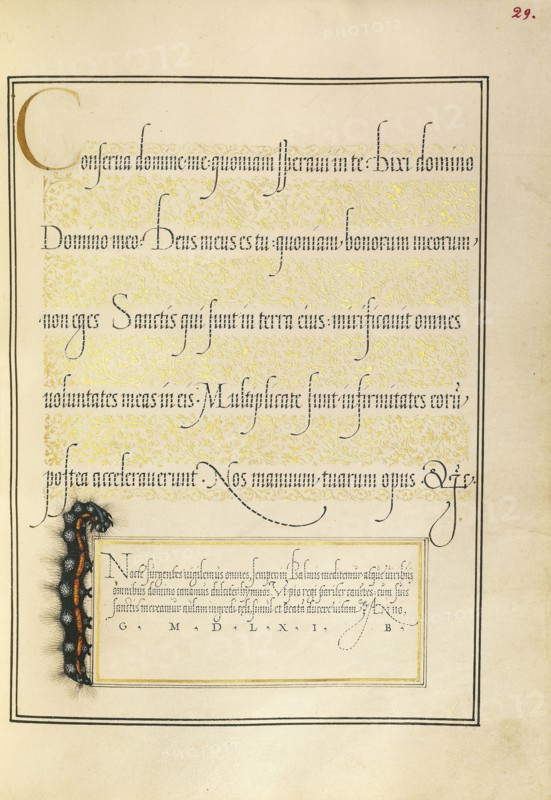 29.
Conserva domine me quoniam speravi in te Dixi domino
Domino meo Deus meus es tu quoniam bonorum meorum
non eges Sanctis qui sunt in terra eius mirificavit omnes
voluntates meas in eis Multiplicate sunt infirmitates eorū
postea acceleraverunt Nos manuum tuarum opus
Nocte surgentes vigilemus omnes, semper in Psalmis meditemur atque viribus
omnibus domino canamus dulciter hymnos Vt pio regi pariter canētes cum suis
sanctis mereamur aulam ingredi celi simul et beatā ducere vitam Anno,
G. M. D. L. X. I. B.